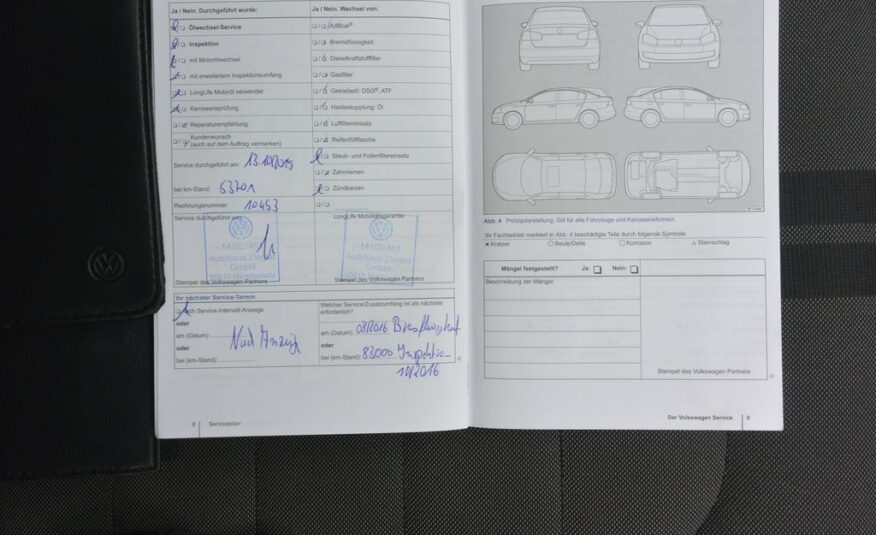 Ja / Nein. Durchgeführt wurde:
Ölwechsel-Service
Inspektion
mit Motorölwechsel
mit erweitertem Inspektionsumfang
LongLife Motoröl verwendet
Karosserieprüfung
Reparaturempfehlung
Kundenwunsch
(auch auf dem Auftrag vermerken)
Service durchgeführt am:
bei km-Stand: 53701
Rechnungsnummer: 10453
Service durchgeführt von:
Autohaus Ziegler
GmbH
Stempel des Volkswagen Partners
Ja / Nein. Wechsel von:
AdBlue®
Bremsflüssigkeit
Dieselkraftstofffilter
Gasfilter
Getriebeöl: DSG®, ATF
Haldexkupplung: Öl
Luftfiltereinsatz
Reifenfüllflasche
Staub- und Pollenfiltereinsatz
Zahnriemen
Zündkerzen
LongLife Mobilitätsgarantie
Autohaus Ziegler
GmbH
Stempel des Volkswagen Partners
Ihr nächster Service-Termin
Nach Service-Intervall-Anzeige
oder
am (Datum):
oder
bei (km-Stand):
Nach Anzeige
Welcher Service/Zusatzumfang ist als nächster
erforderlich?
am (Datum): 08/2016 Bremsflüssigkeit
oder
bei (km-Stand): 83000 Inspektion
10/2016
8 Serviceplan
Abb. 4 Prinzipdarstellung. Gilt für alle Fahrzeuge und Karosserieformen.
Ihr Fachbetrieb markiert in Abb. 4 beschädigte Teile durch folgende Symbole:
Kratzer Beule/Delle Korrosion Steinschlag
Mängel festgestellt? Ja: Nein:
Beschreibung der Mängel:
Stempel des Volkswagen Partners
Der Volkswagen Service 9